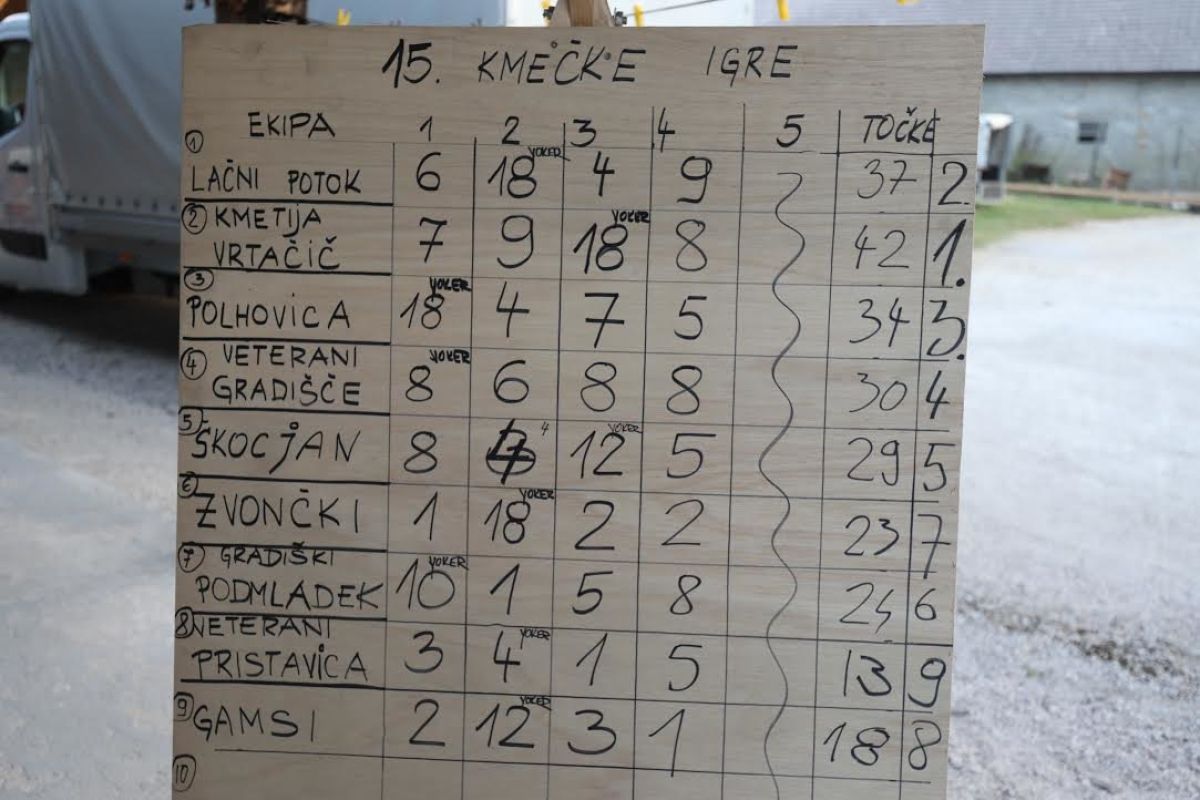 15. KMEČKE IGRE
EKIPA 1 2 3 4 5 TOČKE
1 LAČNI POTOK 6 18 YOKER 4 9 37 2.
2 KMETIJA
VRTAČIČ 7 9 18 YOKER 8 42 1.
3
POLHOVICA 18 YOKER 4 7 5 34 3.
4 VETERANI
GRADIŠČE 8 YOKER 6 8 8 30 4
5 ŠKOCJAN 8 4 12 YOKER 5 29 5
6 ZVONČKI 1 18 YOKER 2 2 23 7
7 GRADIŠKI
PODMLADEK 10 YOKER 1 5 8 24 6
8 VETERANI
PRISTAVICA 3 4 YOKER 1 5 13 9
9 GAMSI 2 12 YOKER 3 1 18 8
10